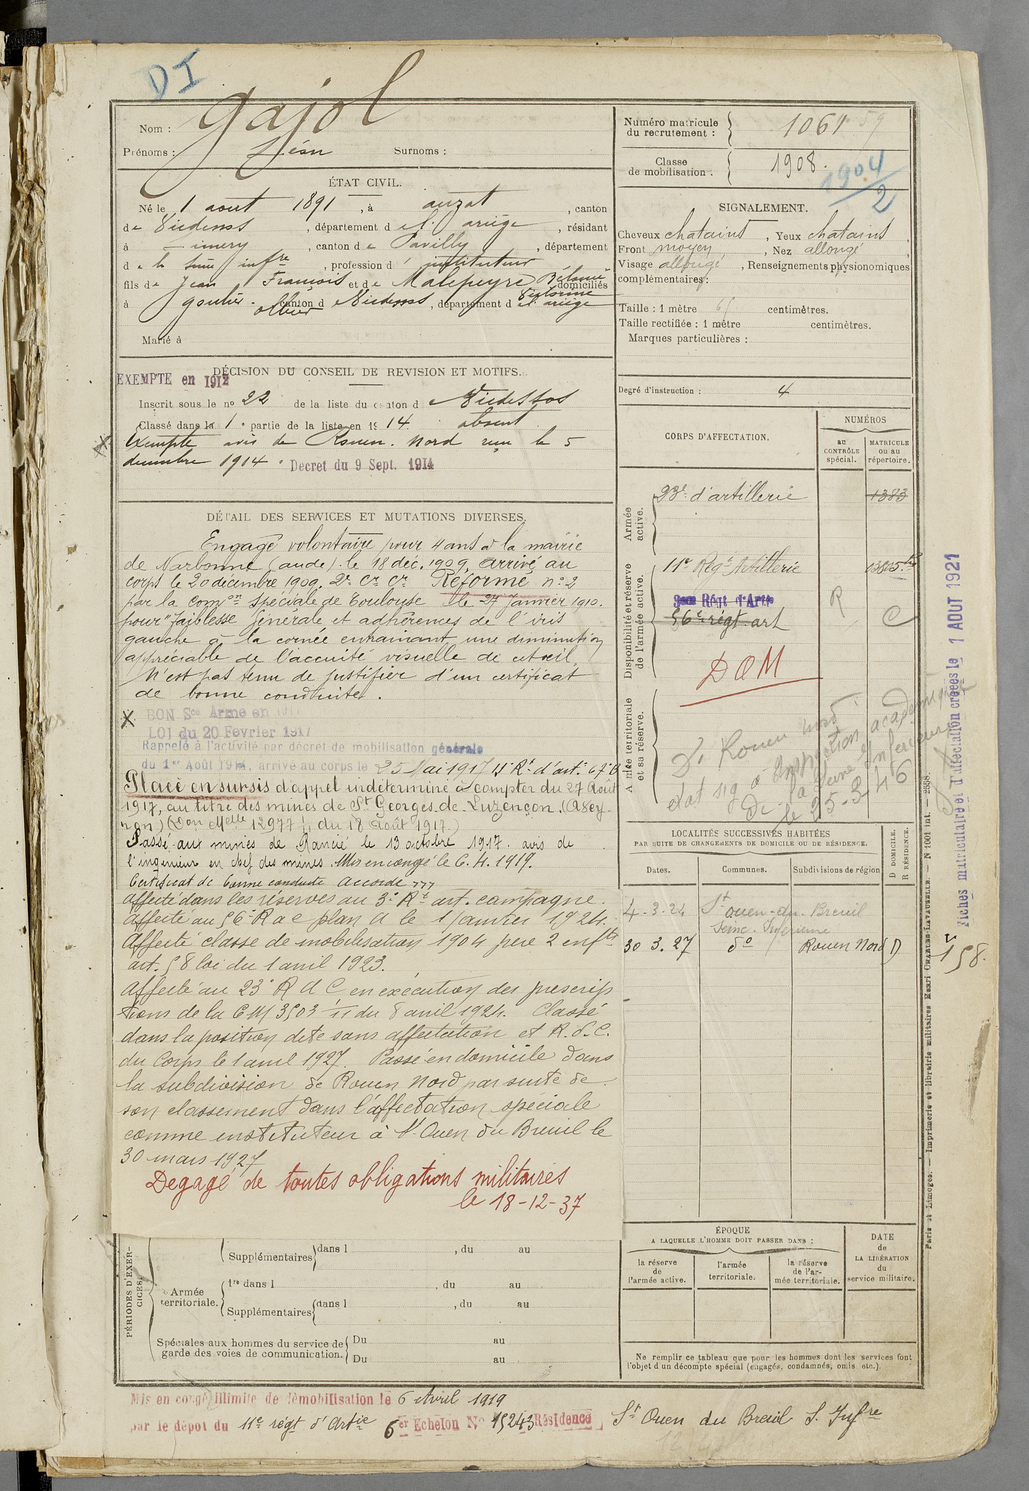 DI
Nom : Gajol
Prénoms : Léon Surnoms :
ÉTAT CIVIL.
Né le 1 aout 1891, à auzat, canton
de Vicdessos, département d l'ariège, résidant
à Limery, canton de Pavilly, département
d e la Seine infre, profession d' instituteur
fils de Jean François et de Malepeyre domiciliés
à goulier canton d Vicdessos, département d l'ariège
Marié à
EXEMPTE en 1912
DÉCISION DU CONSEIL DE REVISION ET MOTIFS.
Inscrit sous le no 22 de la liste du canton d e Vicdessos
Classé dans la 1e partie de la liste en 1914 absent
Exempté avis de Rouen. Nord reçu le 5
decembre 1914. Decret du 9 Sept. 1914
DÉTAIL DES SERVICES ET MUTATIONS DIVERSES.
Engagé volontaire pour 4 ans à la mairie
de Narbonne (aude) le 18 déc. 1909, arrivé au
corps le 20 decembre 1909. 2e Cr Cr Réformé no 2
par la comon spéciale de Toulouse le 27 Janvier 1910.
pour faiblesse générale et adhérences de l'iris
gauche à la cornée entrainant une diminution
appréciable de l'accuité visuelle de cet œil
N'est pas tenu de justifier d'un certificat
de bonne conduite.
X BON Sce Armé en 1917
LOI du 20 Février 1917
Rappelé à l'activité par décret de mobilisation générale
du 1er Août 1914, arrivé au corps le 25 Mai 1917 11e Rt d'art.
Placé en sursis d'appel indéterminé à compter du 27 Août
1917, au titre des mines de St Georges de Luzençon, (Avey-
ron) (Don Melle 12977 du 18 Août 1917)
Passé aux mines de Rancié le 13 octobre 1917. avis de
l'ingenieur en chef des mines. Mis en congé le 6.4.1919.
Certificat de bonne conduite accordé
affecté dans les réserves au 3e Rt art. campagne.
affecté au 56e R a c plan A le 1 janvier 1924.
Affecté classe de mobilisation 1904 père 2 enfts
art. 58 loi du 1 avril 1923.
affecté au 23e R A C en exécution des prescrip
tions de la CM 3503 du 8 avril 1924. Classé
dans la position dite sans affectation et R.d.C.
du Corps le 1 avril 1927. Passé en domicile dans
la subdivision de Rouen Nord par suite de
son classement dans l'affectation spéciale
comme instituteur à St Ouen du Breuil le
30 mars 1927
Degagé de toutes obligations militaires
le 18-12-37
PÉRIODES D'EXER-
CICES.
Supplémentaires dans l , du au
Armée
territoriale.
1re dans l , du au
Supplémentaires dans l , du au
Spéciales aux hommes du service de
garde des voies de communication.
Du au
Du au
Numéro matricule
du recrutement : 1061
Classe
de mobilisation. 1908.
1904/2
SIGNALEMENT.
Cheveux chatains, Yeux chatains,
Front moyen, Nez allongé
Visage allongé, Renseignements physionomiques
complémentaires :
Taille : 1 mètre 65 centimètres.
Taille rectifiée : 1 mètre centimètres.
Marques particulières :
Degré d'instruction : 4
CORPS D'AFFECTATION.
NUMÉROS
au
CONTRÔLE
spécial.
MATRICULE
ou au
répertoire.
Armée
active.
23e d'artillerie 1383
Disponibilité et réserve
de l'armée active.
11e Regt Artillerie
Régt d'Artie
56e régt. art R C
DOM
Armée territoriale
et sa réserve.
D. Rouen nord
état sig à Inspection académique
de la Seine Inférieure
le 25-3-46
LOCALITÉS SUCCESSIVES HABITÉES
PAR SUITE DE CHANGEMENTS DE DOMICILE OU DE RÉSIDENCE.
D. DOMICILE.
R. RÉSIDENCE.
Dates. Communes. Subdivisions de région
4-3-24 St ouen-du-Breuil
Seine-Inferieure
30 3. 27 do Rouen Nord D
ÉPOQUE
A LAQUELLE L'HOMME DOIT PASSER DANS :
la réserve
de
l'armée active.
l'armée
territoriale.
la réserve
de l'ar-
mée territoriale.
DATE
de
LA LIBÉRATION
du
service militaire.
Ne remplir ce tableau que pour les hommes dont les services font
l'objet d'un décompte spécial (engagés, condamnés, omis, etc.).
Fiches matriculaire et d'affectation créées le 1 AOUT 1921
158.
Paris et Limoges. — Imprimerie et librairie militaires Henri CHARLES-LAVAUZELLE.
Mis en congé illimité de démobilisation le 6 Avril 1919
par le dépôt du 11e régt d'Artie 6er Echelon No 15243 Résidence St Ouen du Breuil S. Infre